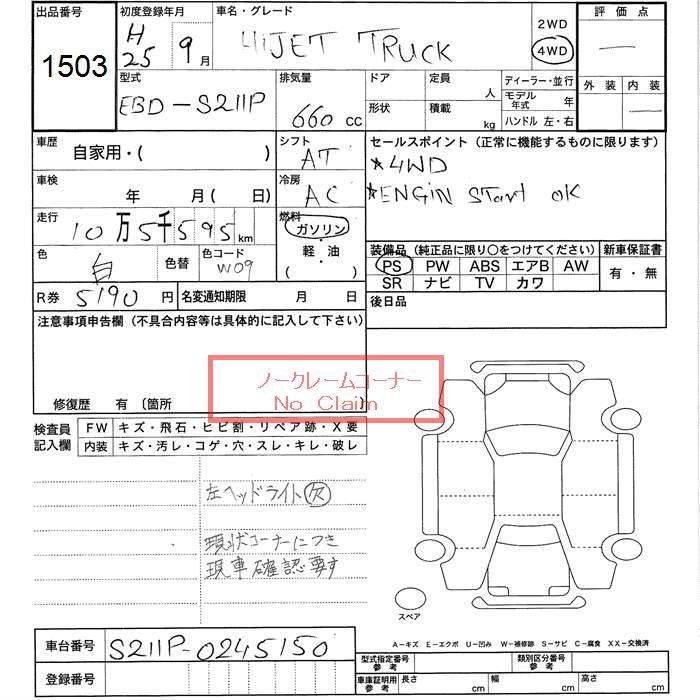 出品番号 初度登録年月 車名・グレード 2WD 評価点
1503 H25 9月 HiJET TRUCK 4WD —
型式 排気量 ドア 定員 ディーラー・並行 外装 内装
EBD-S211P 660 cc 人 モデル年式 年 —
形状 積載 kg ハンドル 左・右
車歴 シフト セールスポイント (正常に機能するものに限ります)
自家用・( ) AT *4WD
車検 冷房 *ENGiN START OK
年 月( 日) AC
走行 燃料
10万5千595km ガソリン
色 色替 色コード 軽・油 装備品 (純正品に限り○をつけてください) 新車保証書
白 W09 ( ) PS PW ABS エアB AW 有・無
SR ナビ TV カワ
R券 5190円 名変通知期限 月 日 後日品
注意事項申告欄 (不具合内容等は具体的に記入して下さい)
ノークレームコーナー
No Claim
修復歴 有 〔箇所 〕
検査員 FW キズ・飛石・ヒビ割・リペア跡・X要
記入欄 内装 キズ・汚レ・コゲ・穴・スレ・キレ・破レ
左ヘッドライト欠
現状コーナーにつき
現車確認要す
スペア
A-キズ E-エクボ U-凹み W-補修跡 S-サビ C-腐食 XX-交換済
車台番号 S211P-0245150
型式指定番号 参考 類別区分番号 参考
登録番号 車庫証明用 参考 長さ cm 幅 cm 高さ cm